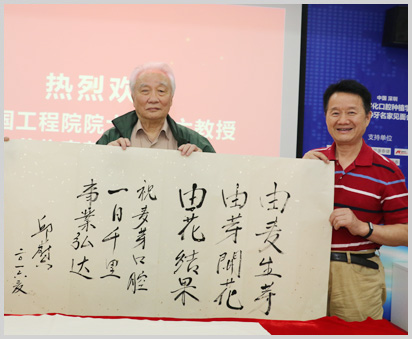 热烈欢
国工程院院
教授
中国 深圳
化口腔种植学
牙名家见面会
支持单位
由麦生芽
由芽開花
由花结果
祝麦芽口腔
一日千里
事業弘达
二〇一六夏